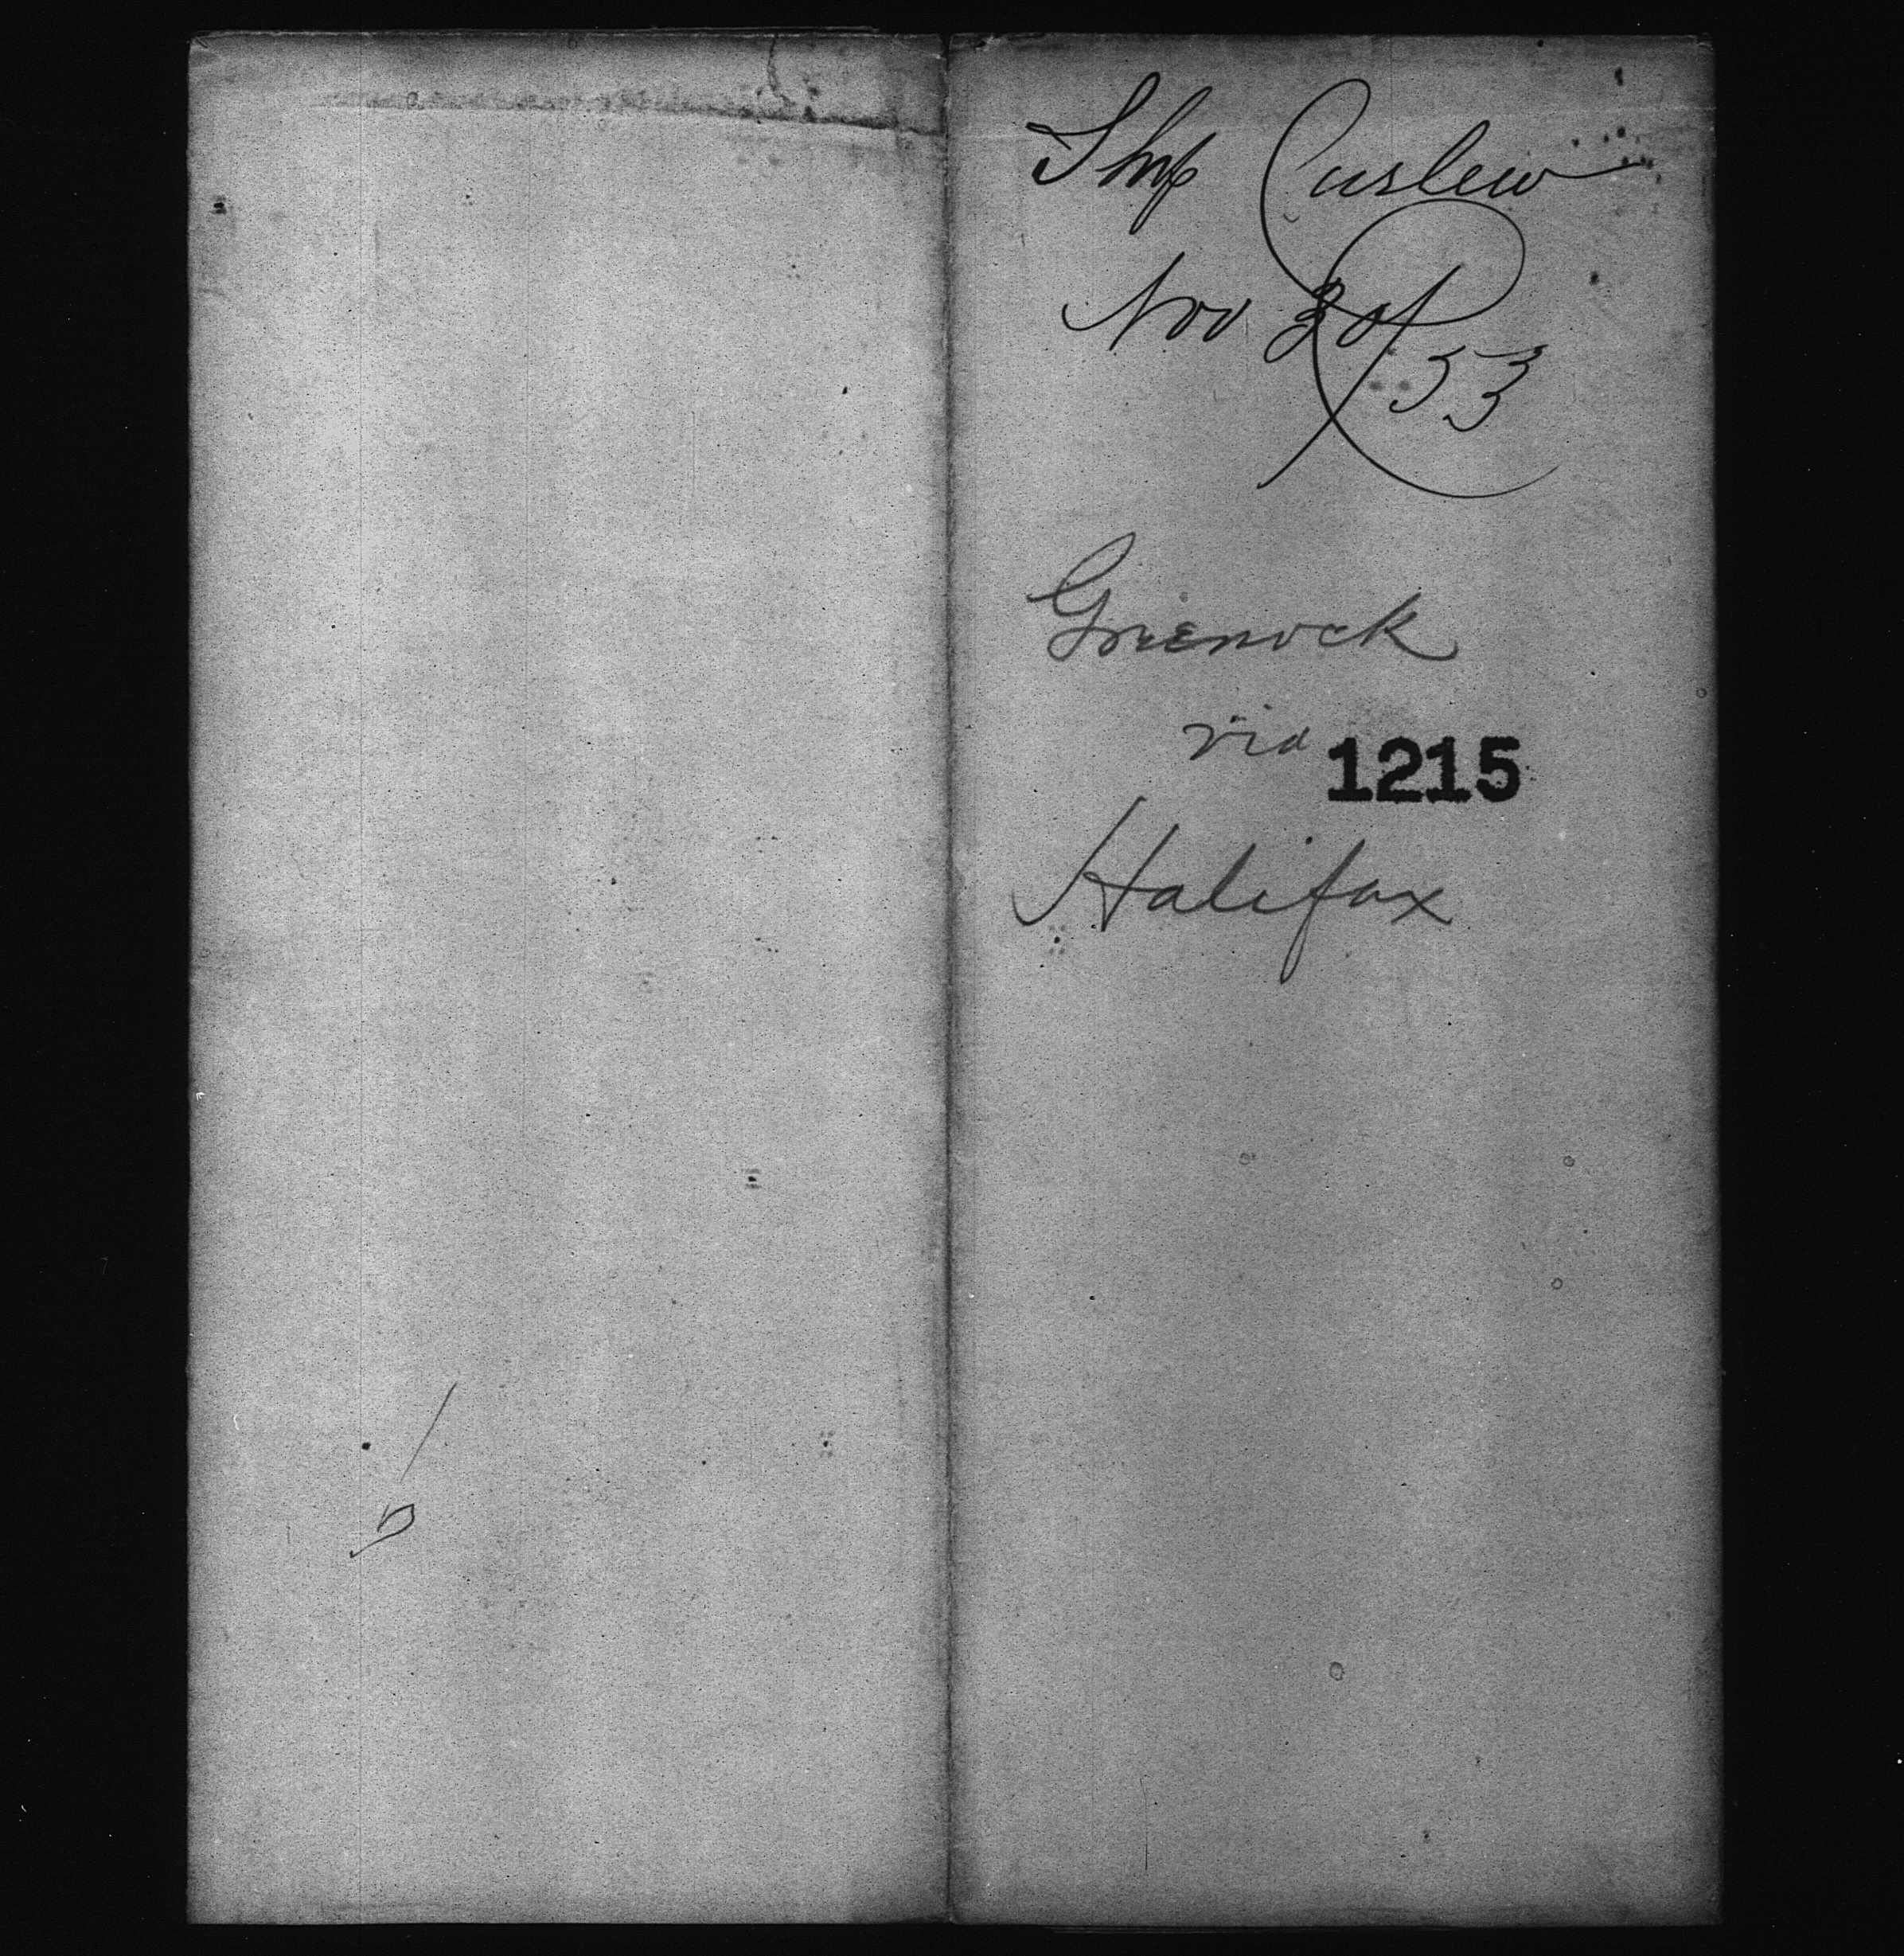 Ship Curlew
Nov 30/53
Greenock
via 1215
Halifax